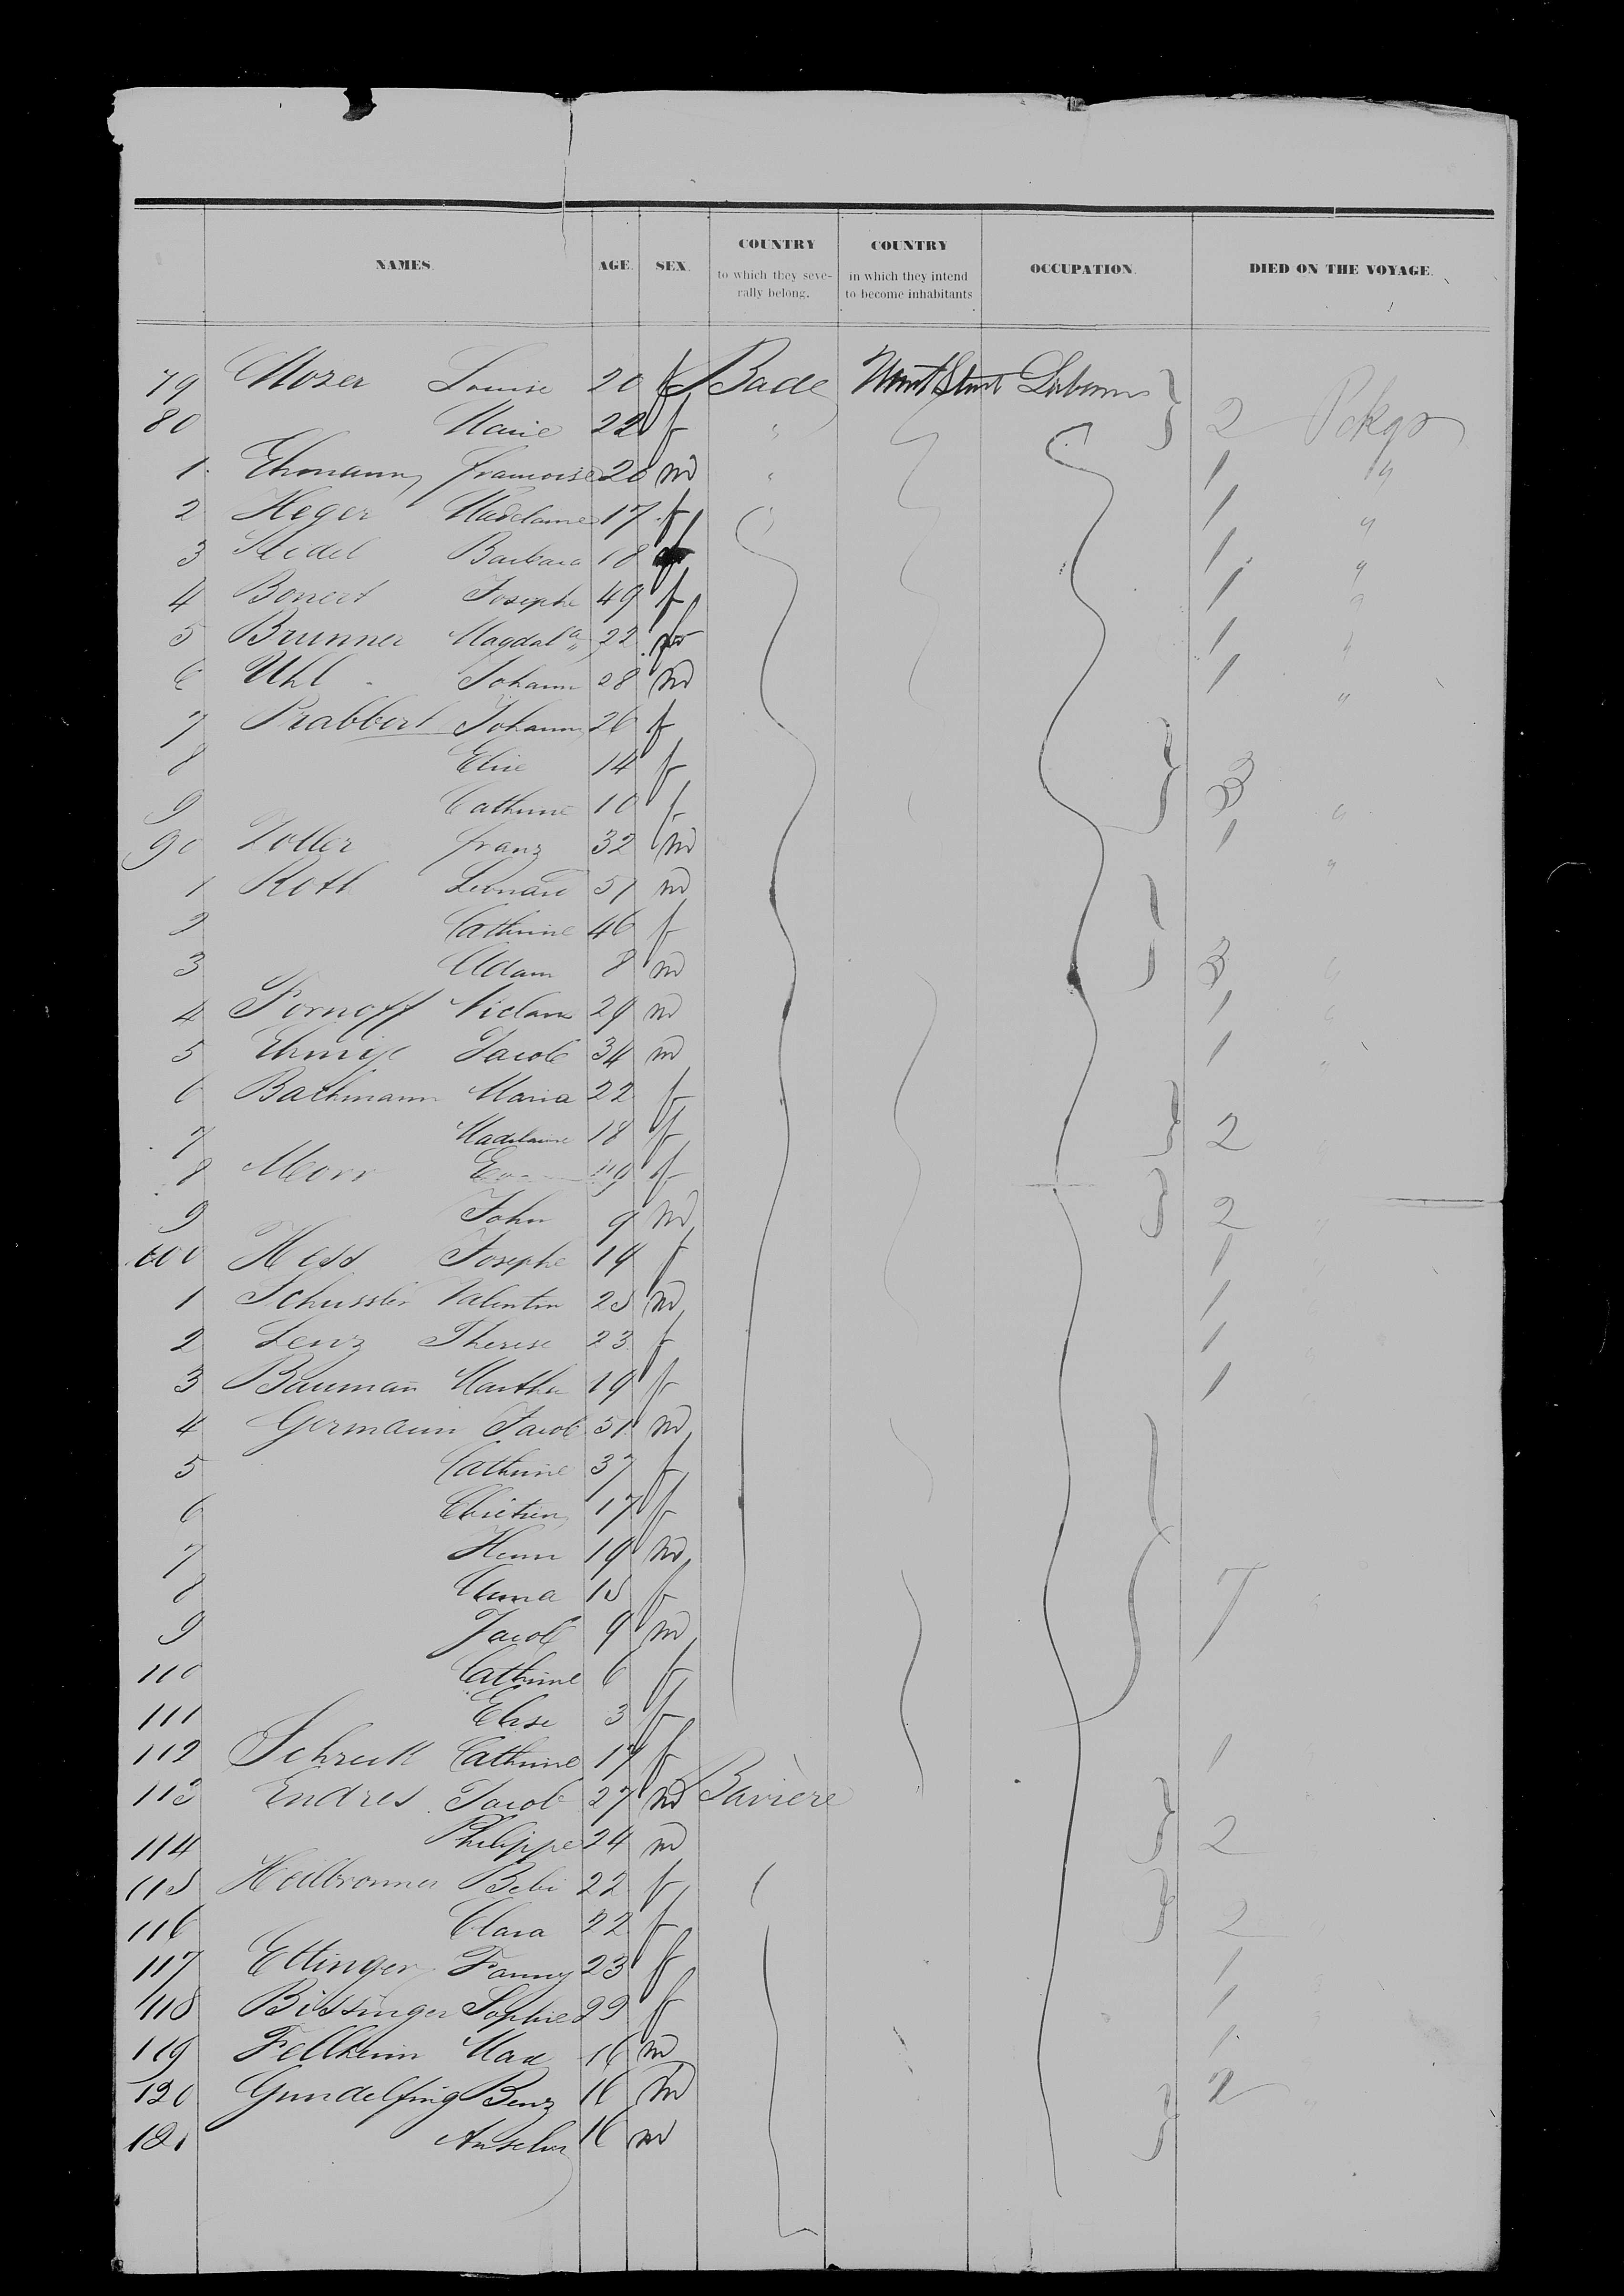 NAMES. AGE. SEX. COUNTRY to which they seve- rally belong. COUNTRY in which they intend to become inhabitants OCCUPATION. DIED ON THE VOYAGE.
79 Mozer Louise 20 f Bade
80 Marie 22 f " 2 Pckgs
1 Ehmann Francoise 20 m " 1 "
2 Heger Madelaine 17 f 1 "
3 Barbara 18 1 "
4 Bonert Josephe 49 f 1 "
5 Brunner Magdala 22 1 "
6 Uhl Johann 28 m 1 "
7 Prabbert Johann 26 f
8 Elise 14 f
9 Cathrine 10 f 3 "
90 Zoller Franz 32 m 1 "
1 Roth Leonard 51 m
2 Cathrine 46 f
3 Adam 8 m 3 "
4 Fornoff 29 m 1 "
5 Jacob 34 m 1 "
6 Bathmann Maria 22 f
7 Madelaine 18 f 2
8 Morr f
9 John 9 m 2 "
100 Hess Josephe 19 f 1
1 Schussler Valentin 25 m 1
2 Lenz Therese 23 f 1
3 Bauman̄ Martha 19 f 1
4 Germann Jacob 51 m
5 Cathrine 37 f
6 17 f
7 Henri 19 m
8 Anna 15 f 7
9 Jacob 9 m
110 Cathrine 6 f
111 Elise 3 f
112 Schreck Cathrine 17 f 1
113 Endres Jacob 27 m Bavière
114 Philippe 24 m 2
115 Heilbronner Bebi 22 f
116 Clara 22 f 2
117 Ettinger Fanny 23 f 1
118 Bissinger Sophie 29 f 1
119 Fellheim Max 16 m 1
120 Gundelfing Benz 16 m 2 "
121 Anselm 16 m